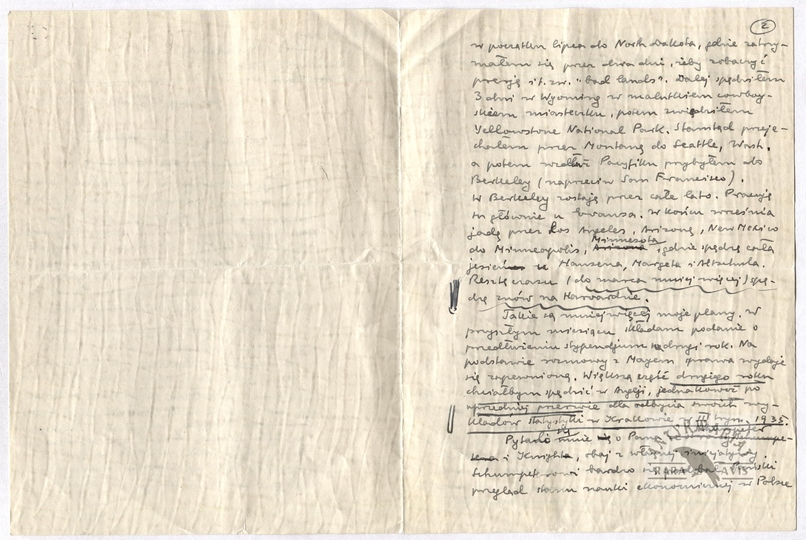 2
w początku lipca do North Dakota, gdzie zatrzy-
małem się przez dwa dni, żeby zobaczyć
prerję i t. zw. "bad lands". Dalej spędziłem
3 dni w Wyoming w malutkiem cowboy-
skiem miasteczku, potem zwiedziłem
Yellowstone National Park. Stamtąd przeje-
chałem przez Montanę do Seattle, Wash.
a potem wzdłuż Pacyfiku przybyłem do
Berkeley (naprzeciw San Francisco).
W Berkeley zostaję przez całe lato. Pracuję
tu głównie u Evansa. W końcu września
jadę przez Los Angeles, Arizonę, New Mexico
do Minneapolis, Minnesota, gdzie spędzę całą
jesień u Hansena, Margeta i Altschula.
Resztę czasu (do marca mniej więcej) spę-
dzę znów na Harvardzie.
Takie są mniej więcej moje plany. W
przyszłym miesiącu składam podanie o
przedłużenie stypendjum na drugi rok. Na
podstawie rozmowy z Mayem sprawa wydaje
się zapewniona. Większą część drugiego roku
chciałbym spędzić w Anglji, jednakowoż po
uprzedniej przerwie dla odbycia swoich wy-
kładów statystyki w Krakowie w III trym. 1935.
Pytali się mnie o Pana
i Knight, obaj z własnej inicjatywy.
Schumpeterowi bardzo się podobał
przegląd stanu nauki ekonomicznej w Polsce
RARA AVIS